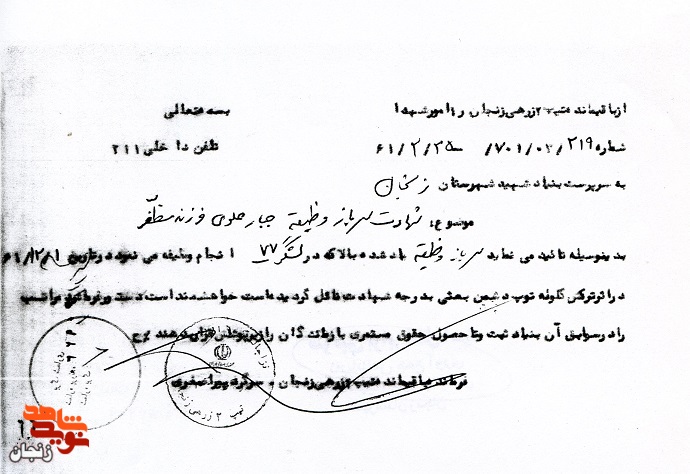 بسمه تعالی
از باقیماند تیپ ۲ زرهی زنجان ر۱ امور شهدا
تلفن داخلی ۲۱۱
شماره ۲۱۹/۰۲/۷۰۱/ ۶۱/۲/۲۵
به سرپرست بنیاد شهید شهرستان زنجان
موضوع: شهادت سرباز وظیفه جبار حلوی فرزند مظفر
بدینوسیله تائید می نماید سرباز وظیفه یاد شده بالا که در لشگر ۷۷ انجام وظیفه می نمود در تاریخ
در اثر ترکش گلوله توپ دشمن بعثی به درجه شهادت نائل گردیده است خواهشمند است دستور فرمائید مراتب
را در سوابق آن بنیاد ثبت و تا حصول حقوق مستمری بازماندگان را زیر پوشش قرار دهند
فرمانده باقیماند تیپ ۲ زرهی زنجان - سرگرد پیراصغری
تیپ ۲ زرهی زنجان
نوید شاهد
زنجان